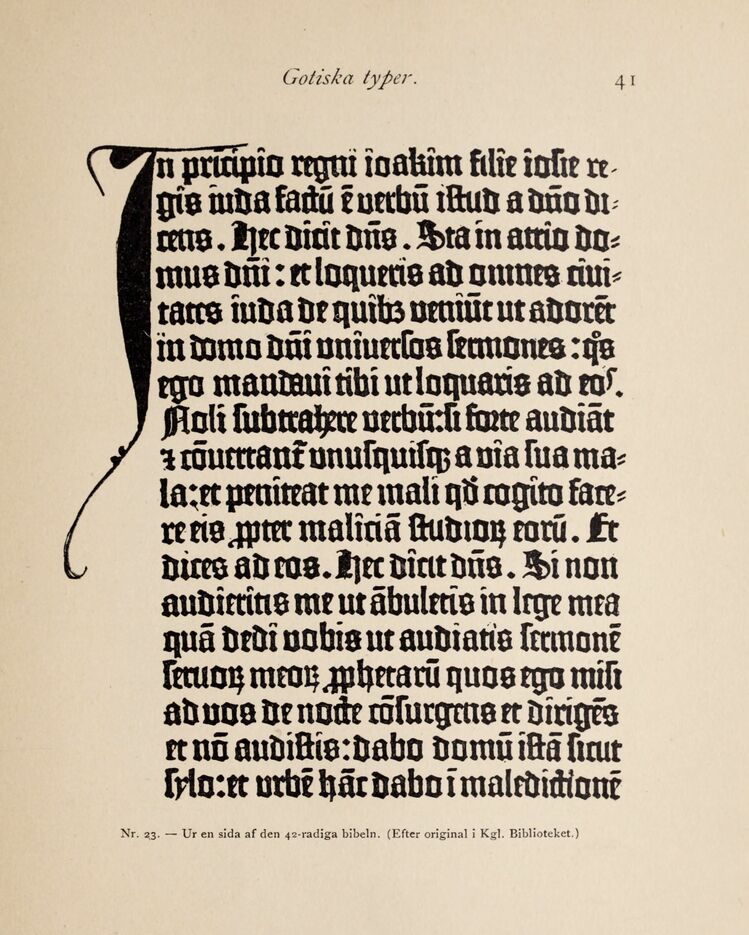 Gotiska typer.
41
In pricipio regni ioakim filie iosie re-
gis iuda factū ē verbū istud a dño di-
cens. Hec dicit dñs. Sta in atrio do-
mus dñi: et loqueris ad omnes civi-
tates iuda de quibꝫ veniūt ut adorēt
in domo dñi universos sermones: qͦs
ego mandavi tibi ut loquaris ad eoſ.
Noli subtrahere verbū: si forte audiāt
⁊ cōvertant̄ unusquisqꝫ a via sua ma-
la: et peniteat me mali qđ cogito face-
re eis ꝓpter maliciā studioꝝ eorū. Et
dices ad eos. Hec dicit dñs. Si non
audieritis me ut ābuletis in lege mea
quā dedi vobis ut audiatis sermonē
servoꝝ meoꝝ ꝓphetarū quos ego misi
ad vos de nocte cōsurgens et dirigēs
et nō audistis: dabo domū istā sicut
sylo: et urbē hāc dabo ī maledictionē
Nr. 23. — Ur en sida af den 42-radiga bibeln. (Efter original i Kgl. Biblioteket.)